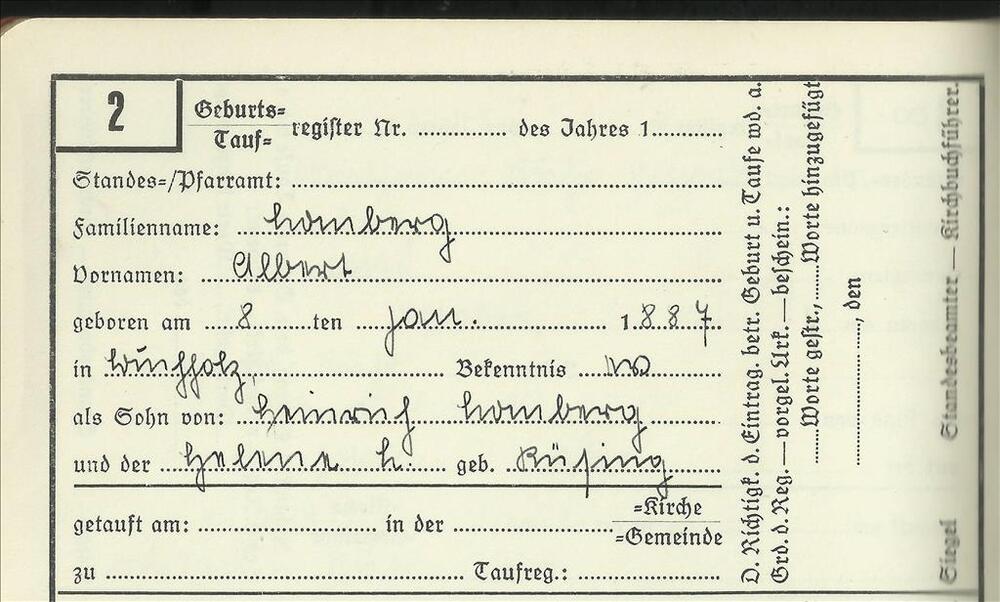 2
Geburts=
Tauf=
register Nr. ............... des Jahres 1............
Standes=/Pfarramt: ...............
Familienname: Homberg
Vornamen: Albert
geboren am 8 ten Jan. 1887
in Buchholz, Bekenntnis
als Sohn von: Heinrich Homberg
und der Helene H. geb. Rüsing
getauft am: ............... in der ............... =Kirche
=Gemeinde
zu ............... Taufreg.: ...............
D. Richtigk. d. Eintrag. betr. Geburt u. Taufe wd. a.
Grd. d. Reg. — vorgel. Urk. — beschein.:
...... Worte gestr., ...... Worte hinzugefügt
..............., den
Siegel Standesbeamter — Kirchbuchführer.